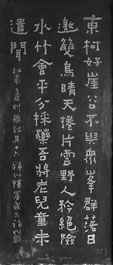 東柯好崖谷不與眾峯群落日
邀雙鳥晴天捲片雲野人矜絕險
水竹會平分採藥吾將老兒童未
遣聞